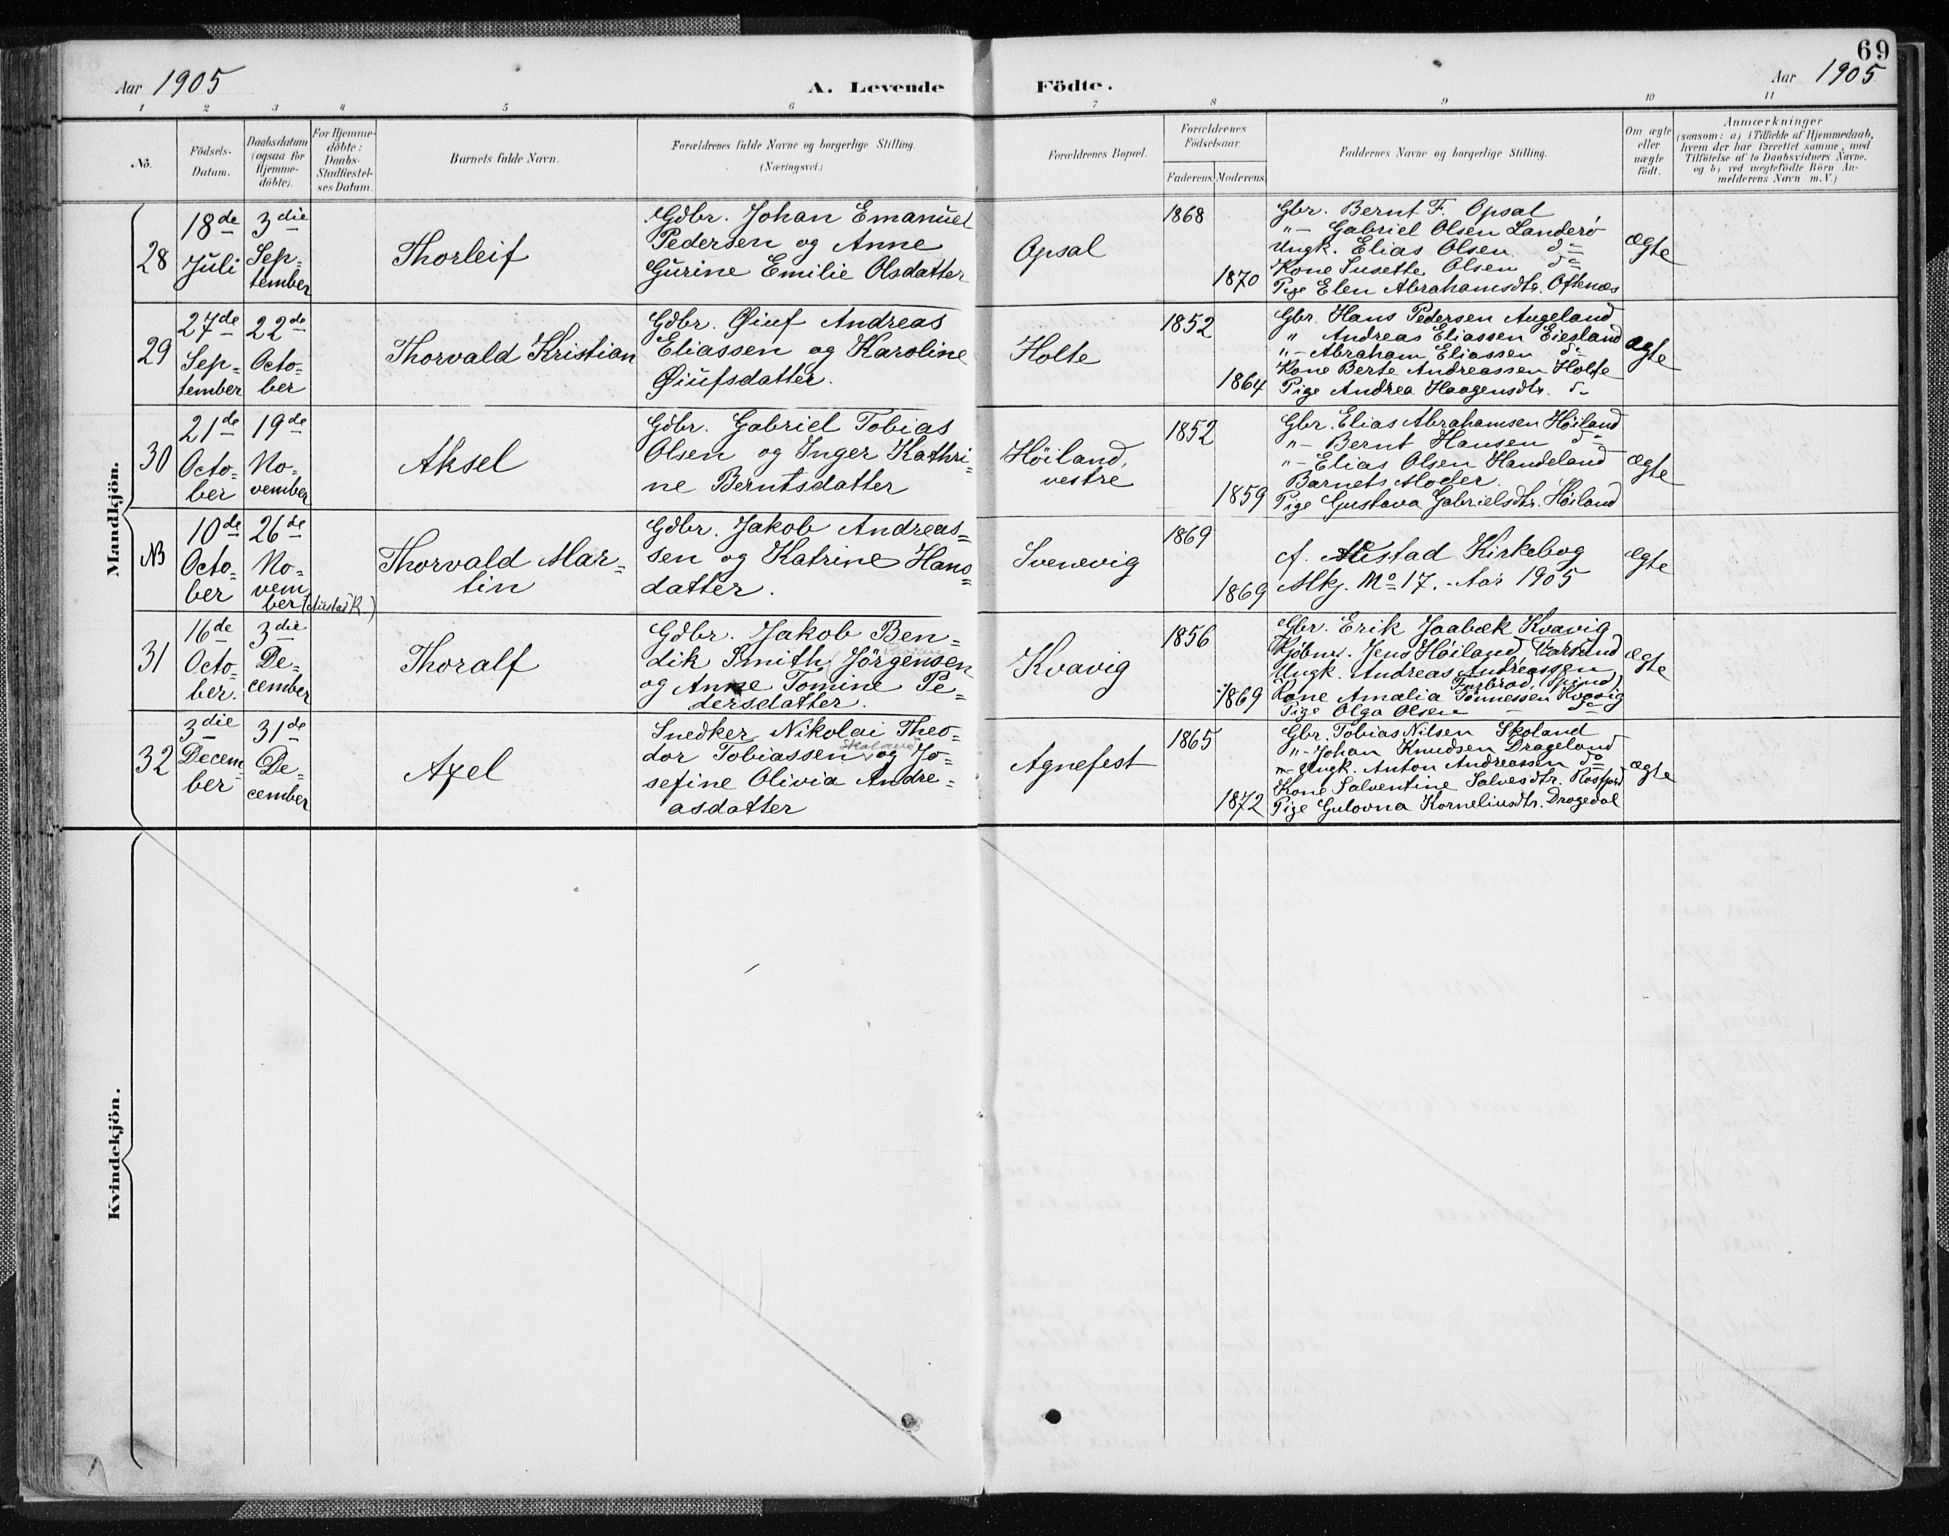 69
Aar 1905
A. Levende
Födte.
Aar 1905
1 2 3 4 5 6 7 8 9 10 11
No.
Födsels-Datum.
Daabsdatum (ogsaa for Hjemmedöbte).
For Hjemmedöbte: Daabs-Stadfæstelses Datum.
Barnets fulde Navn.
Forældrenes fulde Navne og borgerlige Stilling. (Næringsvei.)
Forældrenes Bopæl.
Forældrenes Födselsaar.
Faderens. Moderens.
Faddernes Navne og borgerlige Stilling.
Om ægte eller uægte födt.
Anmærkninger
(saasom: a) i Tilfælde af Hjemmedaab,
hvem der har forrettet samme, med
Tilföielse af to Daabsvidners Navne,
og b) ved uægtefödte Börn An-
melderens Navn m. V.)
Mandkjön.
28
18de Juli
3die Sep=tember
Thorleif
Gdbr. Johan Emanuel
Pedersen og Anne
Gurine Emilie Olsdatter
Opsal
1868
1870
Gbr. Bernt F. Opsal
"- Gabriel Olsen Landerö
Ungk. Elias Olsen do
Kone Susette Olsen do
Pige Elen Abrahamsdtr. Oftenæs
ægte
29
27de Sep=tember
22de Octo=ber
Thorvald Kristian
Gdbr. Øiuf Andreas
Eliassen og Karoline
Øiufsdatter.
Holte
1852
1864
Gbr. Hans Pedersen Augeland
" Andreas Eliassen Eiesland
"- Abraham Eliassen do
Kone Berte Andreassen Holte
Pige Andrea Haagensdtr. do
ægte
30
21de Octo=ber
19de No=vember
Aksel
Gdbr. Gabriel Tobias
Olsen og Inger Kathri=
ne Berntsdatter
Höiland,
vestre
1852
1859
Gbr. Elias Abrahamsen Höiland
"- Bernt Hansen do
"- Elias Olsen Handeland
Barnets Moder.
Pige Gustava Gabrielsdtr. Höiland
ægte
NB
10de Octo=ber
26de No=vember
Thorvald Mar=
tin
Gdbr. Jakob Andreas=
sen og Katrine Hans=
datter.
Svenevig
1869
1869
Kirkebog
Mkj. No 17. Aar 1905
ægte
31
16de Octo=ber.
3die De=cember
Thoralf
Gdbr. Jakob Ben=
dik Smith Jörgensen
og Anne Tomine Pe=
dersdatter.
Kvavig
1856
1869
Gbr. Erik Jaabæk Kvavig
Kjöbm. Jens Höiland
Ungk. Andreas Andreassen
Kone Amalia Tönnessen Kvavig
Pige Olga Olsen do
ægte
32
3die Decem=ber
31de De=cember
Axel
Snedker Nikolai Theo=
dor Tobiassen Skoland og Jo=
sefine Olivia Andre=
asdatter
Agnefest
1865
1872
Gbr. Tobias Nilsen Skoland
"- Johan Knudsen Drageland
Ungk. Anton Andreassen do
Kone Salventine Salvesdtr. Rosfjord
Pige Gulovna Korneliusdtr. Dragedal
ægte
Kvindekjön.